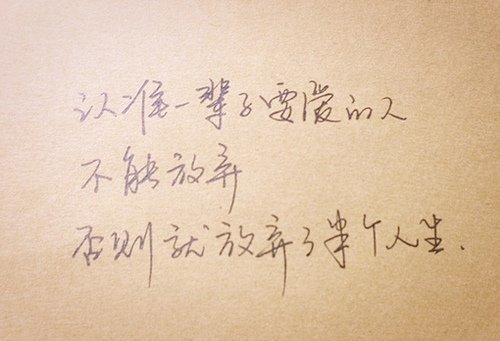 认准一辈子要爱的人
不能放弃
否则就放弃了半个人生.